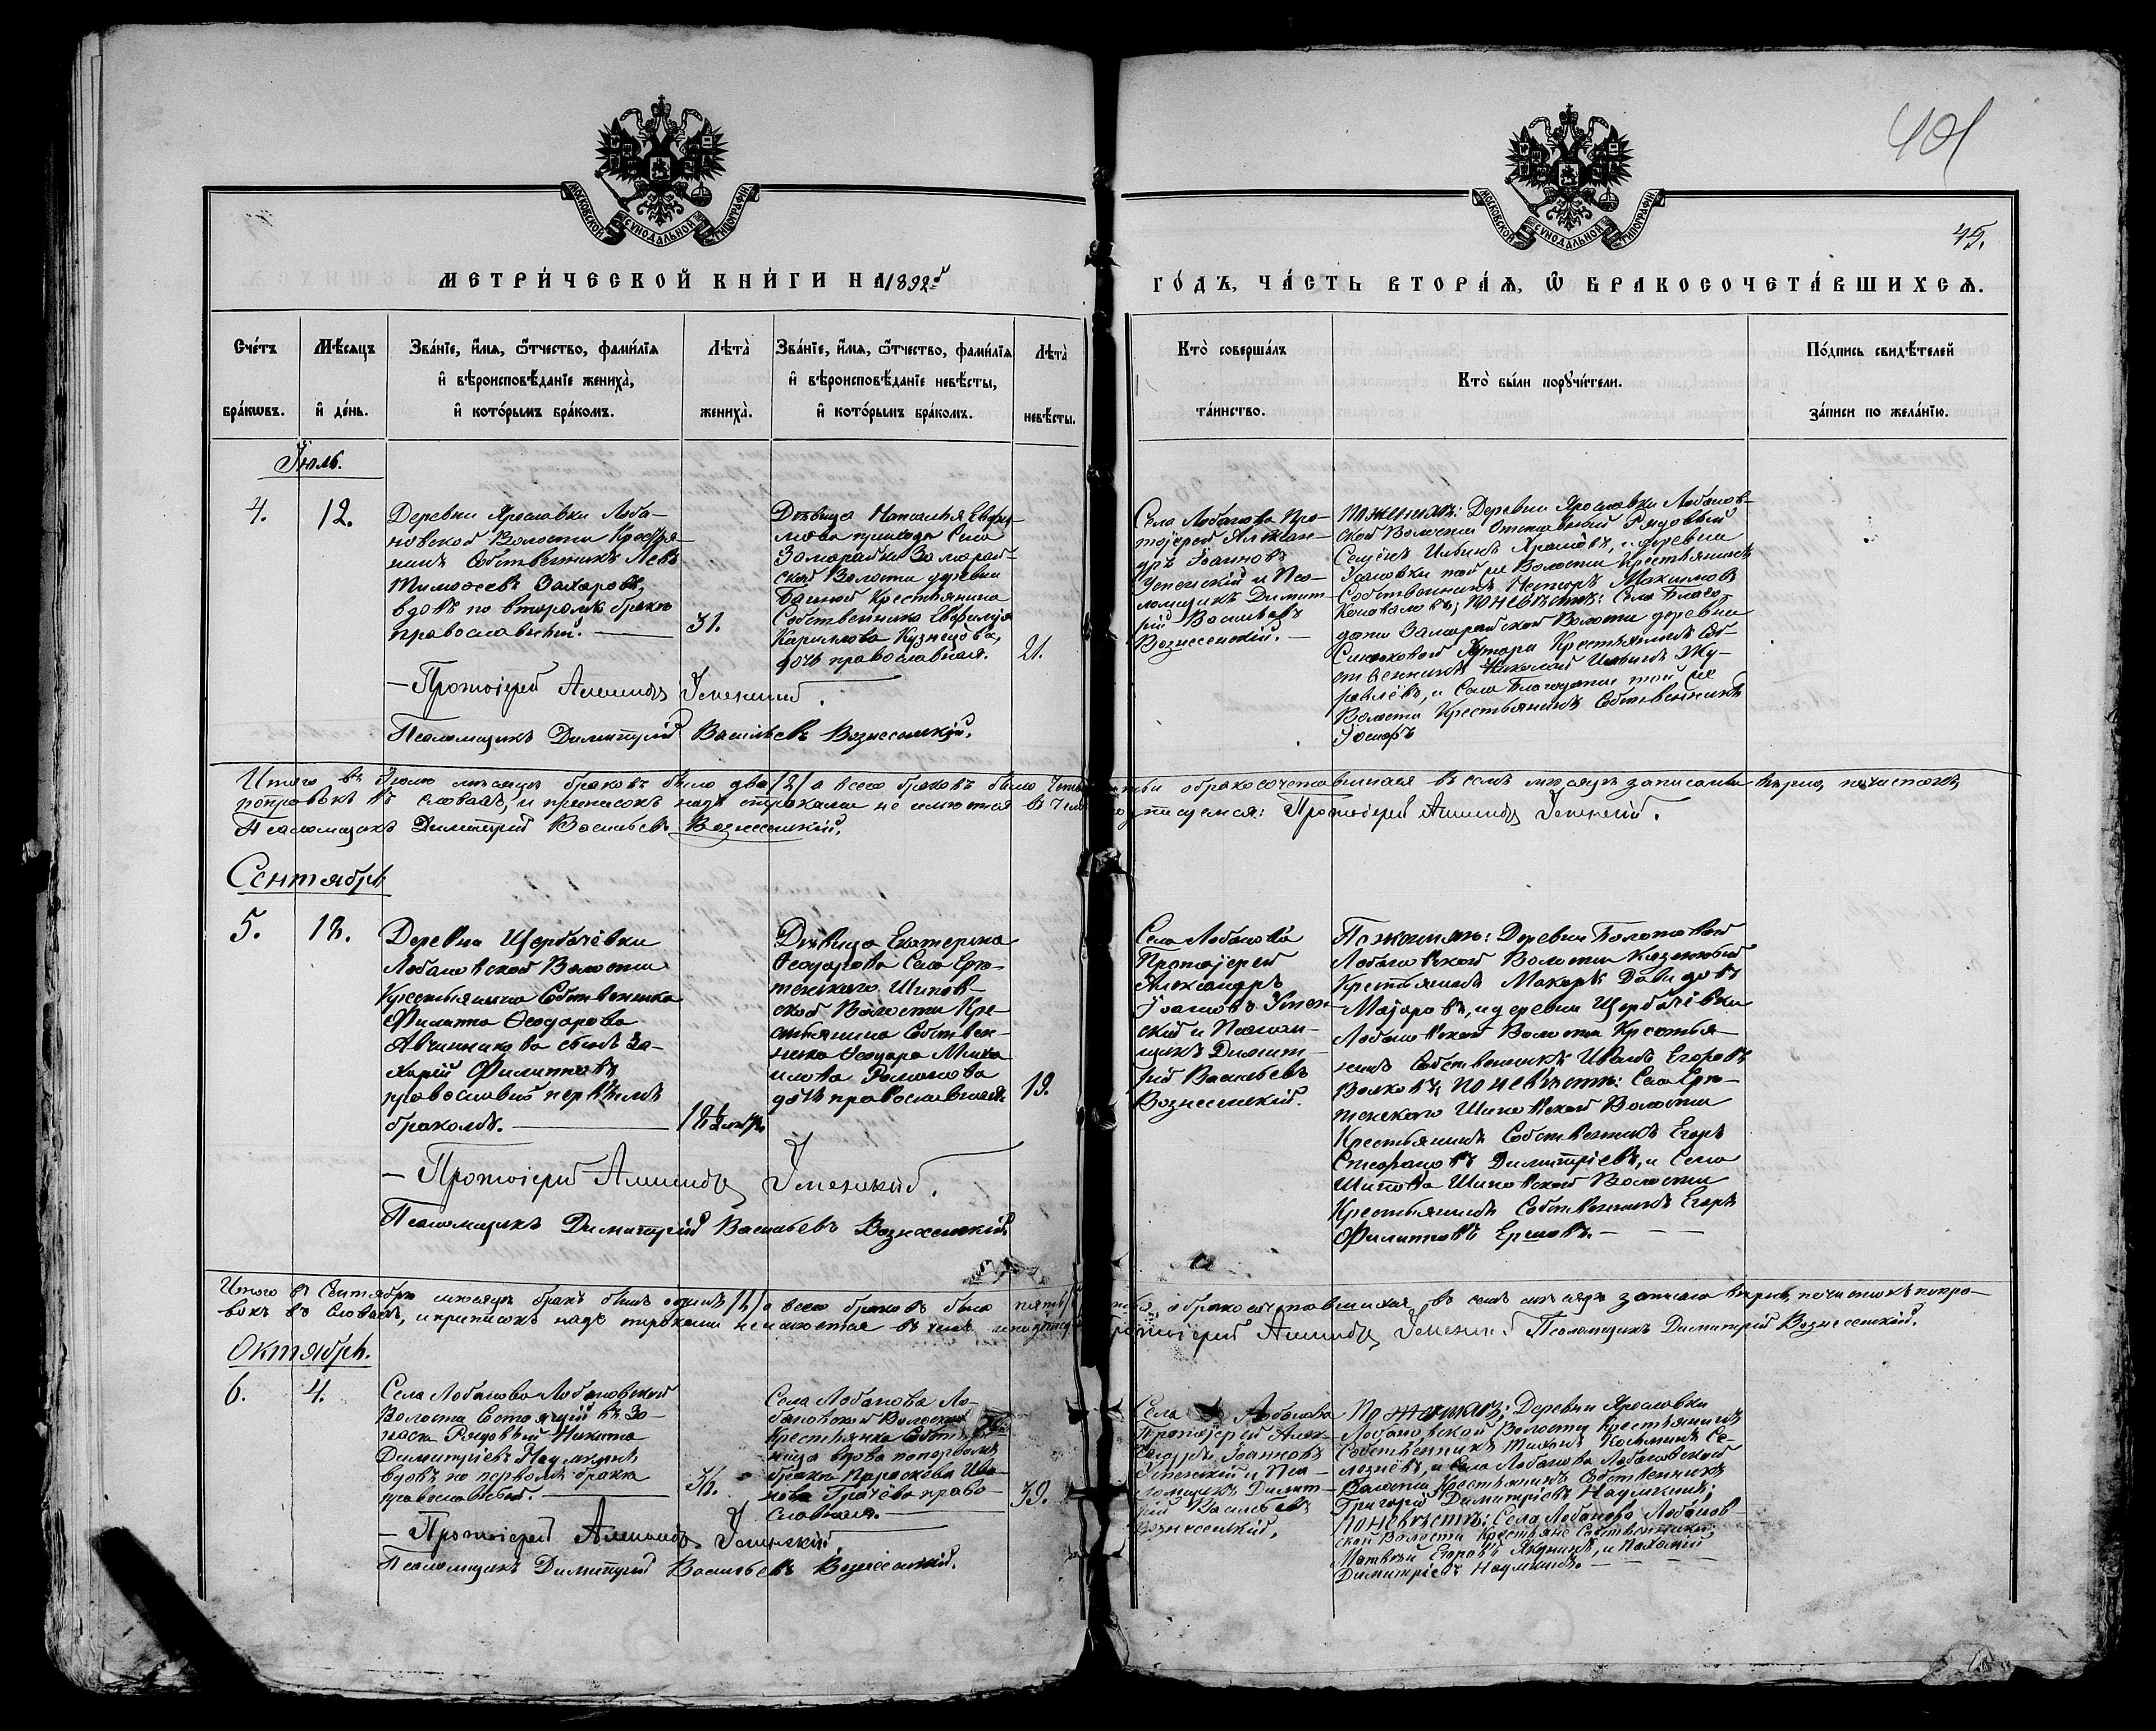 401
45.
МОСКОВСКОЙ СУНОДАЛЬНОЙ ТИПОГРАФІИ
МОСКОВСКОЙ СУНОДАЛЬНОЙ ТИПОГРАФІИ
МЕТРИ́ЧЕСКОЙ КНИ́ГИ НА 1892 г
ГО́ДЪ, ЧА́СТЬ ВТОРА́Ѧ, Ѡ҆ БРАКОСОЧЕТА́ВШИХСѦ.
Сче́тъ
бра́кѡвъ.
Мѣ́сѧцъ
и҆ де́нь.
Зва́нїе, и҆́мѧ, ѻ҆́тчество, фами́лїѧ
и҆ вѣроисповѣ́данїе жениха̀,
и҆ кото́рымъ бра́комъ.
Лѣта̀
жениха̀.
Зва́нїе, и҆́мѧ, ѻ҆́тчество, фами́лїѧ
и҆ вѣроисповѣ́данїе невѣ́сты,
и҆ кото́рымъ бра́комъ.
Лѣта̀
невѣ́сты.
Кто̀ соверша́лъ
та́инство.
Кто̀ бы́ли порꙋчи́тели.
По́дпись свидѣ́телей
за́писи по жела́нїю.
Іюль.
4.
12.
Деревни Ярославки Лоба-
новской Волости Крестья-
нинъ Собственникъ Левъ
Тимоѳеевъ Захаровъ,
вдовъ по второмъ бракѣ
православный.
31.
Дѣвица Наталья Евфи-
мова прихода Села
Заморайки Заморай-
ской Волости деревни
Крестьянина
Собственника Евфимія
Кириллова Кузнецова,
дочь православная.
21.
Села Лобанова Про-
тоіерей Алексан-
дръ Іоанновъ
Успенскій и Пса-
ломщикъ Димит-
рій Васильевъ
Вознесенскій.
По женихѣ: Деревни Ярославки Лобанов-
ской Волости Отставный Рядовый
Семенъ Ильинъ и деревни
той же Волости Крестьянинъ
Собственникъ Несторъ Максимовъ
Коноваловъ; по невѣстѣ: Села Благо-
дати Заморайской Волости деревни
Хутора Крестьянинъ Соб-
ственникъ Николай Ильинъ Жу-
равлёвъ, и Села Благодати той же
Волости Крестьянинъ Собственникъ
— Протоіерей Александръ Успенскій.
Псаломщикъ Димитрій Васильевъ Вознесенскій.
Итого въ Іюлѣ мѣсяцѣ браковъ было два /2/ а всего браковъ было о бракосочетавшихся въ семъ мѣсяцѣ записаны вѣрно, почистокъ,
поправокъ въ словахъ, и приписокъ надъ строками не имѣется въ чемъ и подписуемся: Протоіерей Александръ Успенскій.
Псаломщикъ Димитрій Васильевъ Вознесенскій.
Сентябрь
5.
18.
Деревни Щербачёвки
Лобановской Волости
Крестьянина Собственника
Филиппа Ѳеодорова
Авчинникова сынъ За-
харій Филипповъ
православный первымъ
бракомъ.
Дѣвица Екатерина
Ѳеодорова Села Срѣ-
тенскаго Шипов-
ской Волости Кре-
стьянина Собствен-
ника Ѳеодора Миха-
илова Романова
дочь православная.
19.
Села Лобанова
Протоіерей
Александръ
Іоанновъ Успен-
скій и Псалом-
щикъ Димит-
рій Васильевъ
Вознесенскій.
По женихѣ: Деревни Болотовой
Лобановской Волости Казенный
Крестьянинъ Макаръ Давидовъ
Маіоровъ, и деревни Щербачёвки
Лобановской Волости Крестья-
нинъ Собственникъ Иванъ Егоровъ
Волковъ; по невѣстѣ: Села Срѣ-
тенскаго Шиповской Волости
Крестьянинъ Собственникъ Егоръ
Стефановъ Димитріевъ, и Села
Шипова Шиповской Волости
Крестьянинъ Собственникъ Егоръ
Филипповъ Ершовъ.
— Протоіерей Александръ Успенскій.
Псаломщикъ Димитрій Васильевъ Вознесенскій
Итого въ Сентябрѣ мѣсяцѣ бракъ былъ одинъ /1/ а всего браковъ было пять о бракосочетавшихся въ семъ мѣсяцѣ записаны вѣрно, почистокъ, попра-
вокъ въ словахъ, и приписокъ надъ строками не имѣется въ чемъ и подписуемся Протоіерей Александръ Успенскій Псаломщикъ Димитрій Вознесенскій.
Октябрь.
6.
4.
Села Лобанова Лобановской
Волости Состоящій въ За-
пасѣ Рядовый Никита
Димитріевъ Наумкинъ
вдовъ по первомъ бракѣ
православный.
Села Лобанова Ло-
бановской Волости
Крестьянка Собствен-
ница вдова по первомъ
бракѣ Параскева Ива-
нова Грачёва право-
славная.
39.
Села Лобанова
Протоіерей Алек-
сандръ Іоанновъ
Успенскій и Пса-
ломщикъ Димит-
рій Васильевъ
Вознесенскій.
По женихѣ: Деревни Ярославки
Лобановской Волости Крестьянинъ
Собственникъ Косминъ Се-
лезнёвъ, и Села Лобанова Лобановской
Волости Крестьянинъ Собственникъ
Григорій Димитріевъ Наумкинъ;
по невѣстѣ: Села Лобанова Лобанов-
ской Волости Крестьяне Собственники:
Матвѣй Егоровъ Якунинъ, и Пахомій
Димитріевъ Наумкинъ.
— Протоіерей Александръ Успенскій.
Псаломщикъ Димитрій Васильевъ Вознесенскій.